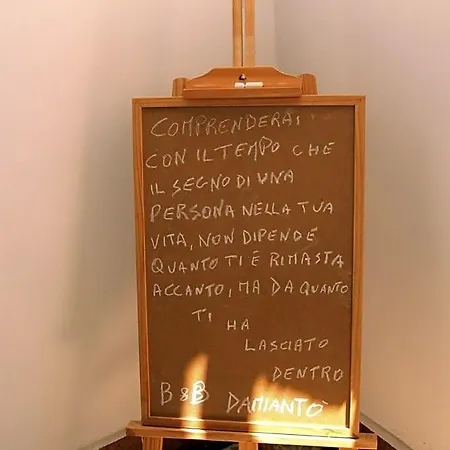 COMPRENDERAI
CON IL TEMPO CHE
IL SEGNO DI UNA
PERSONA NELLA TUA
VITA, NON DIPENDE
QUANTO TI É RIMASTA
ACCANTO, MA DA QUANTO
TI HA
LASCIATO
DENTRO
B&B DAMIANTO